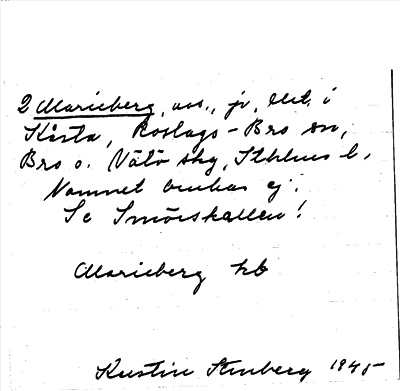 2 Marieberg, avs., jr, lht. i
Kårsta, Roslags-Bro sn,
Bro o. Vätö skg, Sthlms l.
Namnet brukas ej.
Se Smörskallen!
Marieberg hb
Kerstin Stenberg 1945